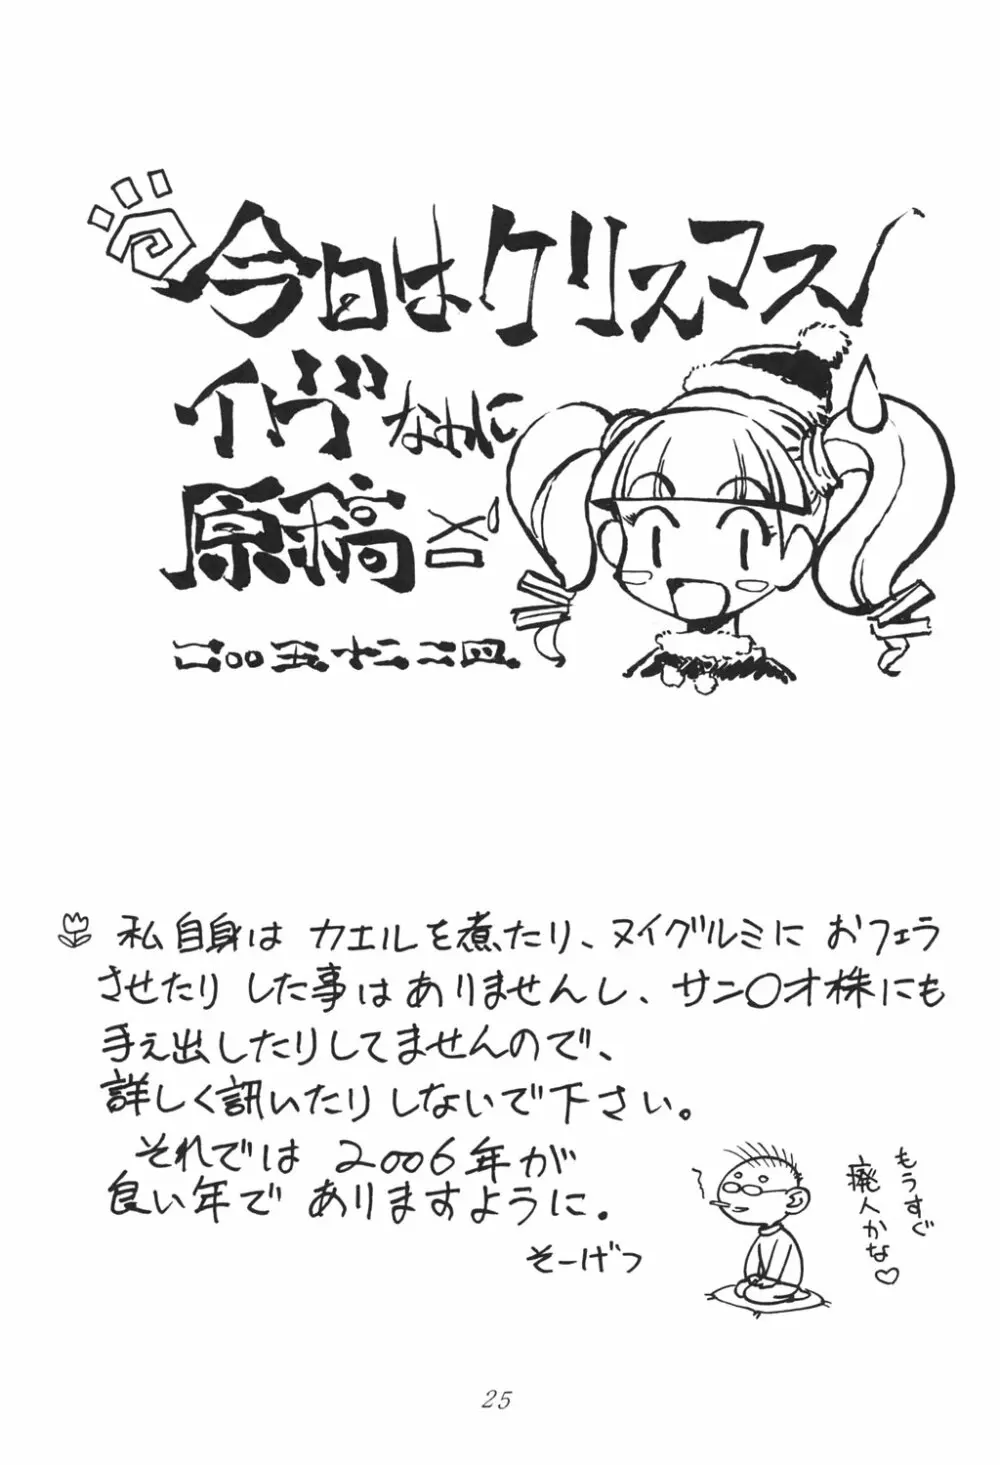 今日はクリスマス
イヴなのに
原稿
二〇〇五 十二 二四
私自身は カエルを煮たり、ヌイグルミに おフェラ
させたり した事は ありませんし、サン〇オ株にも
手え出したりしてませんので、
詳しく訊いたり しないで下さい。
それでは 2006年が
良い年で ありますように。
そーげつ
もうすぐ
廃人かな♡
25